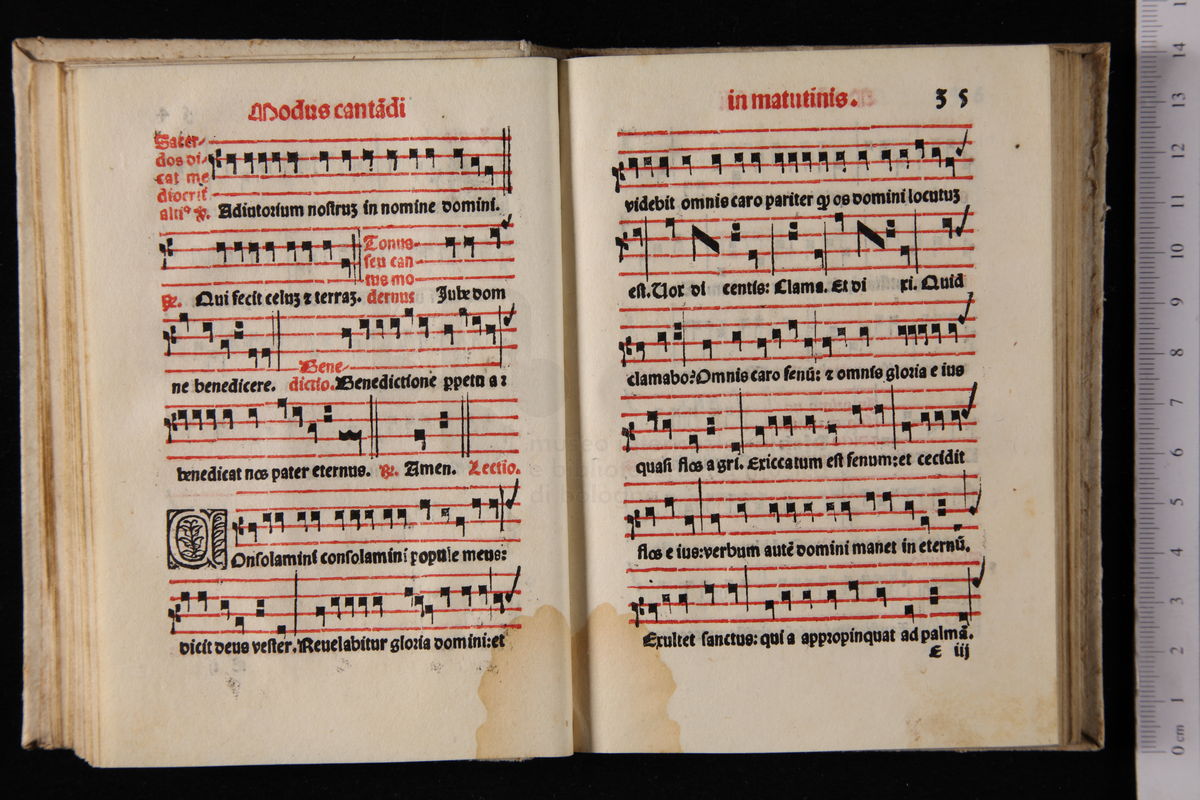 Modus cantādi
Sacer⸗
dos di⸗
cat me
diocrit̄
alti⁹ ꝟ.
Adiutorium nostruꝫ in nomine domini.
Tonus
seu can⸗
tus mo⸗
dernus
℟. Qui fecit celuꝫ ⁊ terraꝫ. Jube dom
ne benedicere.
Bene⸗
dictio. Benedictione ꝑpetu a :
benedicat nos pater eternus. ℟. Amen. Lectio.
COnsolamini consolamini popule meus:
dicit deus vester. Reuelabitur gloria domini: et
in matutinis. 35
videbit omnis caro pariter ꝙ os domini locutuꝫ
est. Uox di centis: Clama. Et di xi. Quid
clamabo? Omnis caro fenū: ⁊ omnis gloria e ius
quasi flos a gri. Exiccatum est fenum: et cecidit
flos e ius: verbum autē domini manet in eternū.
Exultet sanctus: qui a appropinquat ad palmā.
E iij
museo
e bibliote
di bologna
0 cm 1 2 3 4 5 6 7 8 9 10 11 12 13 14